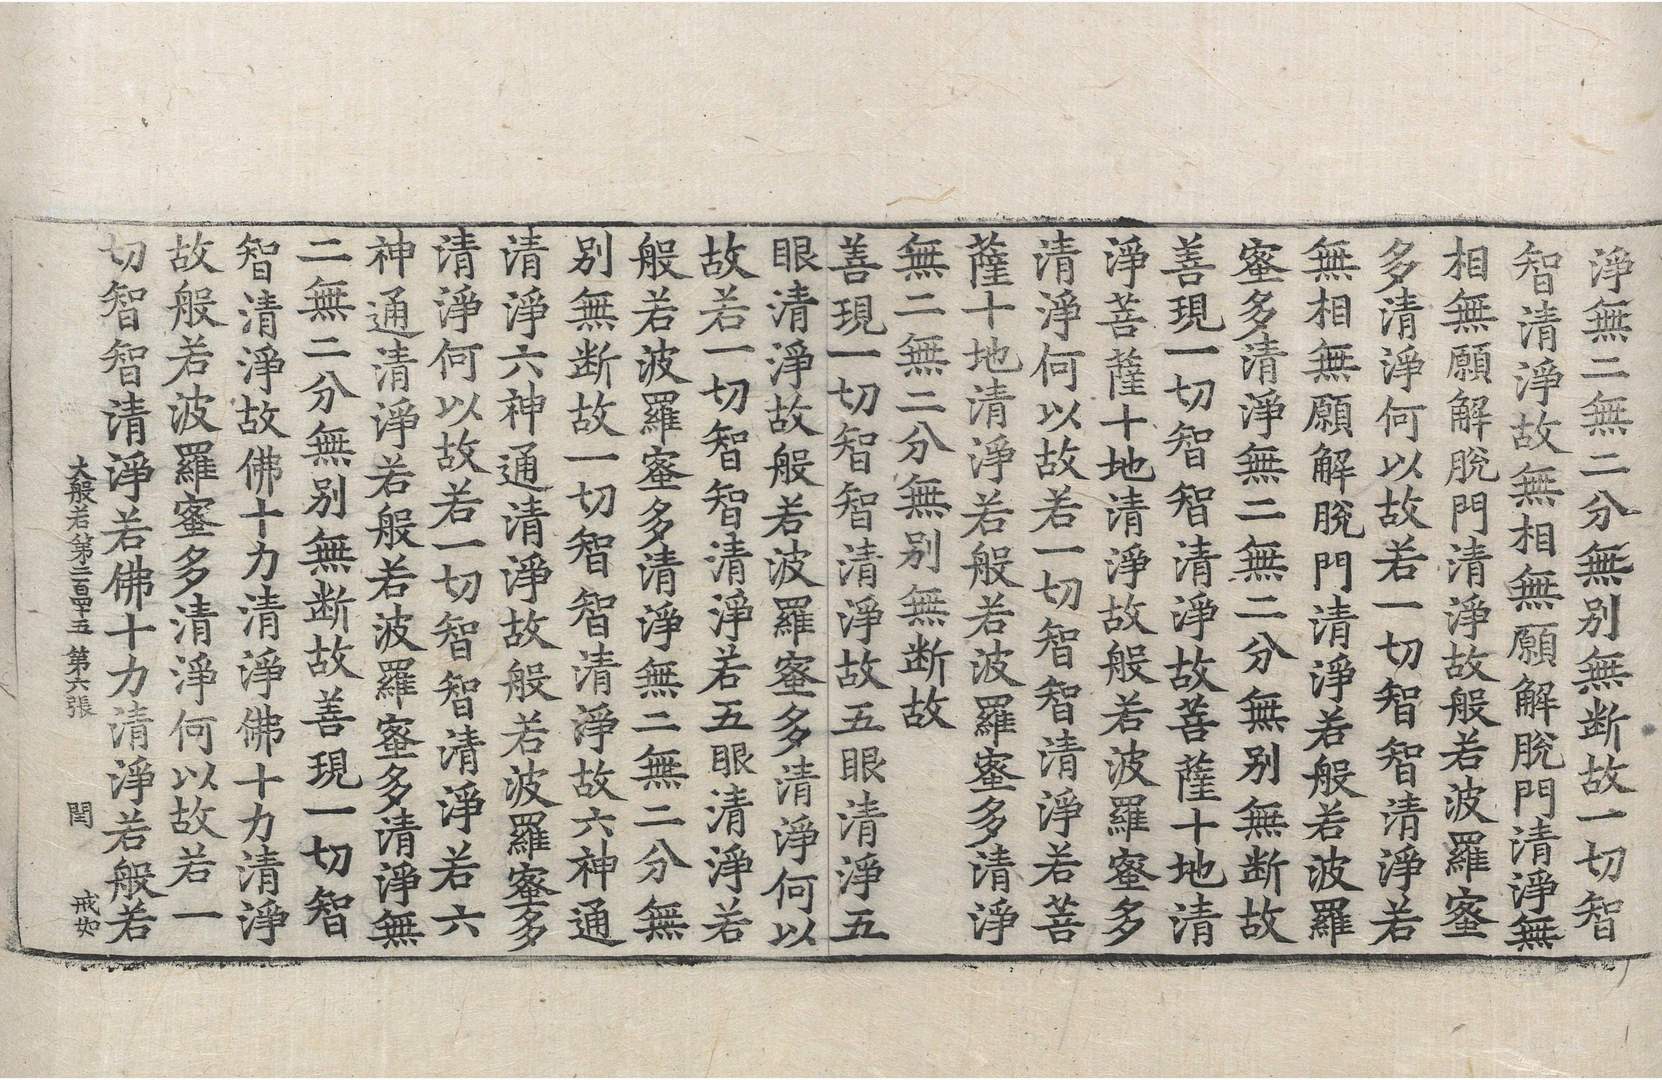 淨無二無二分無別無断故一切智
智清淨故無相無願解脫門清淨無
相無願解脫門清淨故般若波羅蜜
多清淨何以故若一切智智清淨若
無相無願解脫門清淨若般若波羅
蜜多清淨無二無二分無別無断故
善現一切智智清淨故菩薩十地清
淨菩薩十地清淨故般若波羅蜜多
清淨何以故若一切智智清淨若菩
薩十地清淨若般若波羅蜜多清淨
無二無二分無別無断故
善現一切智智清淨故五眼清淨五
眼清淨故般若波羅蜜多清淨何以
故若一切智智清淨若五眼清淨若
般若波羅蜜多清淨無二無二分無
別無断故一切智智清淨故六神通
清淨六神通清淨故般若波羅蜜多
清淨何以故若一切智智清淨若六
神通清淨若般若波羅蜜多清淨無
二無二分無別無断故善現一切智
智清淨故佛十力清淨佛十力清淨
故般若波羅蜜多清淨何以故若一
切智智清淨若佛十力清淨若般若
大般若第二百四五 第六張 閏 戒如